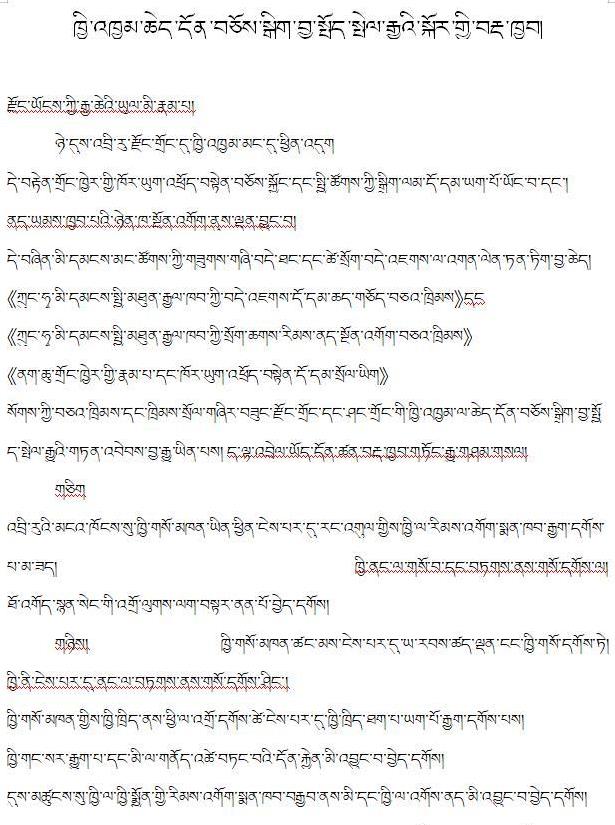 ཁྱི་འཁྱམ་ཆེད་དོན་བཅོས་སྒྲིག་བྱ་སྤྱོད་སྤེལ་རྒྱུའི་སྐོར་གྱི་བརྡ་ཁྱབ།
རྫོང་ཡོངས་ཀྱི་རྒྱ་ཆེའི་ཡུལ་མི་རྣམ་པ།
ཉེ་དུས་འབྲི་རུ་རྫོང་གྲོང་དུ་ཁྱི་འཁྱམ་མང་དུ་ཕྱིན་འདུག
དེ་བརྟེན་གྲོང་ཁྱེར་གྱི་ཁོར་ཡུག་འཕྲོད་བསྟེན་བཅོས་སྐྱོང་དང་སྤྱི་ཚོགས་ཀྱི་སྒྲིག་ལམ་དོ་དམ་ཡག་པོ་ཡོང་བ་དང་།
ནད་ཡམས་ཁྱབ་པའི་ཉེན་ཁ་སྔོན་འགོག་ནུས་ལྡན་བྱུང་བ།
དེ་བཞིན་མི་དམངས་མང་ཚོགས་ཀྱི་གཟུགས་གཞི་བདེ་ཐང་དང་ཚེ་སྲོག་བདེ་འཇགས་ལ་འགན་ལེན་ཏན་ཏིག་བྱ་ཆེད།
《ཀྲུང་ཧྭ་མི་དམངས་སྤྱི་མཐུན་རྒྱལ་ཁབ་ཀྱི་བདེ་འཇགས་དོ་དམ་ཆད་གཅོད་བཅའ་ཁྲིམས》དང
《ཀྲུང་ཧྭ་མི་དམངས་སྤྱི་མཐུན་རྒྱལ་ཁབ་ཀྱི་སྲོག་ཆགས་རིམས་ནད་སྔོན་འགོག་བཅའ་ཁྲིམས》
《ནག་ཆུ་གྲོང་ཁྱེར་གྱི་རྣམ་པ་དང་ཁོར་ཡུག་འཕྲོད་བསྟེན་དོ་དམ་སྲོལ་ཡིག》
སོགས་ཀྱི་བཅའ་ཁྲིམས་དང་ཁྲིམས་སྲོལ་གཞིར་བཟུང་རྫོང་གྲོང་དང་ཤང་གྲོང་གི་ཁྱི་འཁྱམ་ལ་ཆེད་དོན་བཅོས་སྒྲིག་བྱ་སྤྱོ
ད་སྤེལ་རྒྱུའི་གཏན་འབེབས་བྱ་རྒྱུ་ཡིན་པས། ད་ལྟ་འབྲེལ་ཡོད་དོན་ཚན་བརྡ་ཁྱབ་གཏོང་རྒྱུ་གཤམ་གསལ།
གཅིག
འབྲི་རུའི་མངའ་ཁོངས་སུ་ཁྱི་གསོ་མཁན་ཡིན་ཕྱིན་ངེས་པར་དུ་རང་འགུལ་གྱིས་ཁྱི་ལ་རིམས་འགོག་སྨན་ཁབ་རྒྱག་དགོས་
པ་མ་ཟད། ཁྱི་ནང་ལ་གསོ་བ་དང་བཏགས་ནས་གསོ་དགོས་ལ།
ཐོ་འགོད་སྙན་སེང་གི་འགྲོ་ལུགས་ལག་བསྟར་ནན་པོ་བྱེད་དགོས།
གཉིས། ཁྱི་གསོ་མཁན་ཚང་མས་ངེས་པར་དུ་ཡ་རབས་ཚད་ལྡན་ངང་ཁྱི་གསོ་དགོས་ཏེ།
ཁྱི་ནི་ངེས་པར་དུ་ནང་ལ་བཏགས་ནས་གསོ་དགོས་ཤིང་།
ཁྱི་གསོ་མཁན་གྱིས་ཁྱི་ཁྲིད་ནས་ཕྱི་ལ་འགྲོ་དགོས་ཚེ་ངེས་པར་དུ་ཁྱི་ཁྲིད་ཐག་པ་ཡག་པོ་རྒྱག་དགོས་པས།
ཁྱི་གང་སར་རྒྱུག་པ་དང་མི་ལ་གནོད་འཚེ་བཏང་བའི་དོན་རྐྱེན་མི་འབྱུང་བ་བྱེད་དགོས།
དུས་མཚུངས་སུ་ཁྱི་ལ་ཁྱི་སྨྱོན་གྱི་རིམས་འགོག་སྨན་ཁབ་བརྒྱབ་ནས་མི་དང་ཁྱི་ལ་འགོས་ནད་མི་འབྱུང་བ་བྱེད་དགོས།